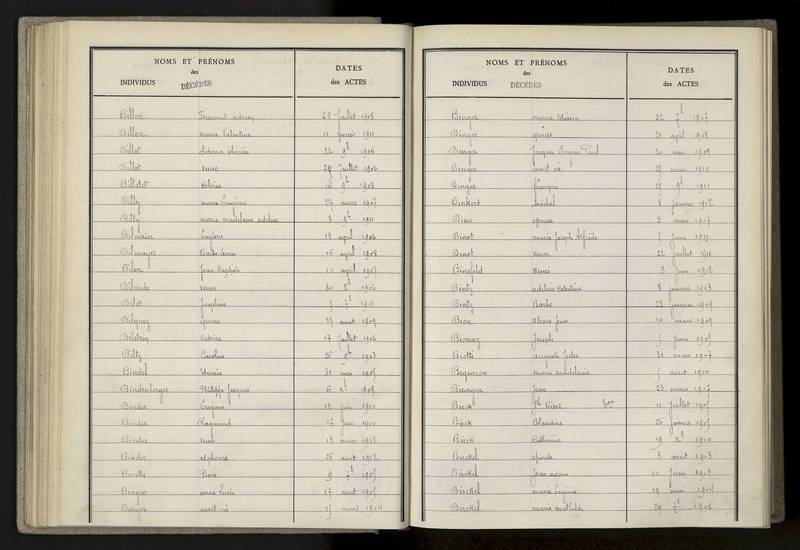 NOMS ET PRÉNOMS
des
INDIVIDUS DÉCÉDÉS
DATES
des ACTES
Billon Fernand 28 Juillet 1908
Billon marie Valentine 11 février 1911
Billot 22 9b 1906
Billot veuve 29 Juillet 1906
Billotet 16 9b 1908
Billy marie Eugénie 27 mars 1907
Billy marie madeleine adeline 8 9b 1911
Bilmaier Eugénie 13 april 1906
Bilmayer 16 april 1908
Bilon Jean Baptiste 10 april 1907
Bilonde veuve 30 8b 1906
Bilot Joséphine 5 7b 1911
épouse 27 août 1909
Victoire 17 Juillet 1906
Biltz Caroline 26 9b 1903
Bindel Thérèse 31 mai 1905
Bindenberger Philippe Jacques 6 Xb 1909
Binder Eugénie 12 juin 1910
Binder Raymond 17 juin 1910
Binder veuve 13 mars 1912
Binder alphonse 26 août 1912
Pierre 9 7b 1905
Bingen anna Lucie 17 août 1905
Binger mort-né 15 mars 1904
NOMS ET PRÉNOMS
des
INDIVIDUS DÉCÉDÉS
DATES
des ACTES
Binger marie Thérèse 22 7b 1907
Binger épouse 21 april 1908
Binger Jacques Eugène Paul 20 mai 1909
Binger mort né 27 mars 1910
Binger françois 29 9b 1911
Binkert michel 8 janvier 1912
Bino épouse 3 mars 1907
Binot marie Joseph Alfride 5 Juin 1911
Binot veuve 22 juillet 1911
Binsfeld Henri 3 Juin 1912
Bintz adeline Celestine 8 janvier 1903
Bintz Barbe 23 janvier 1909
Bion alexis Jean 10 mars 1909
Bionaz Joseph 5 juin 1905
Biotti auguste Jules 31 mars 1907
Biqueron marie madeleine 5 août 1910
Jean 23 mars 1907
Birck 11 Juillet 1905
Birck Blandine 26 janvier 1905
Birck Catherine 19 Xb 1910
Birckel épouse 3 août 1903
Birckel Jean adam 10 Juin 1903
Birckel marie Eugénie 19 mai 1904
Birckel marie mathilde 29 7b 1906